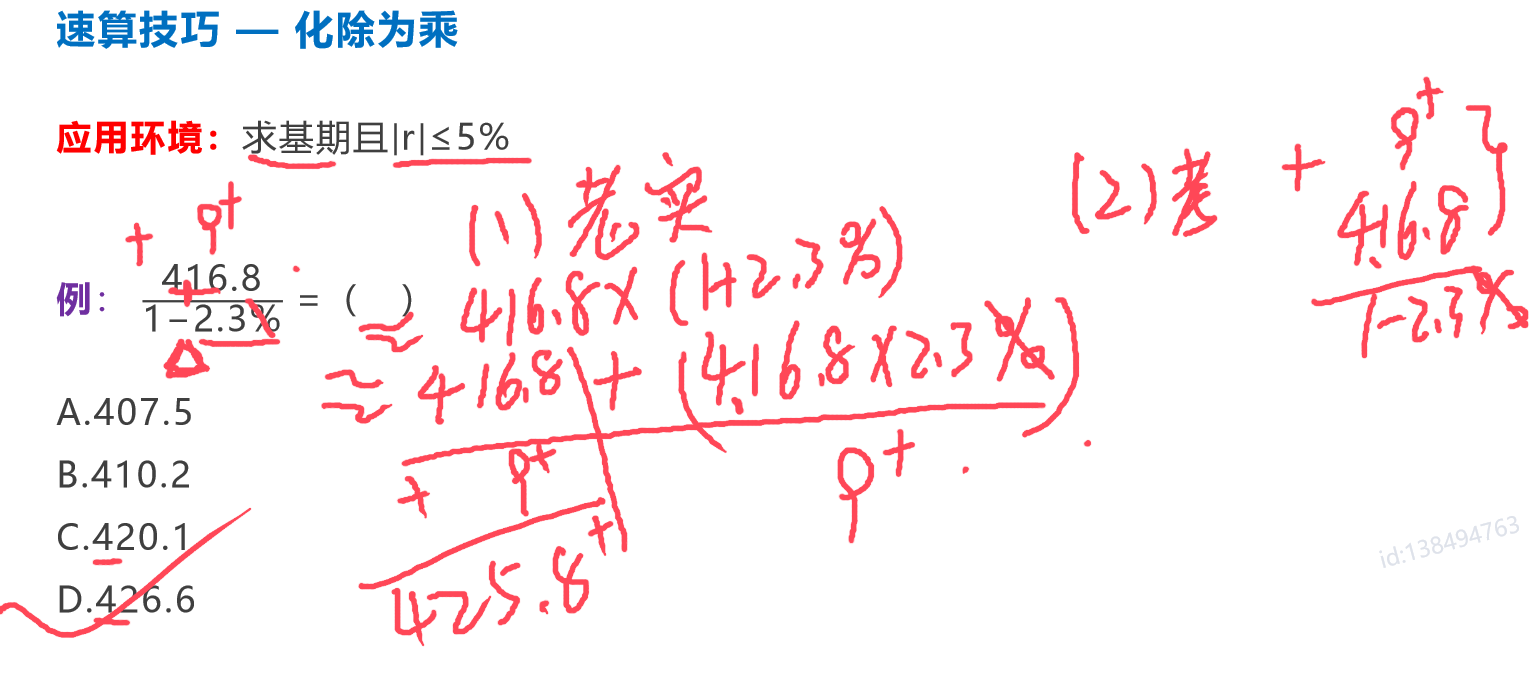 速算技巧 — 化除为乘
应用环境：求基期且|r|≤5%
+ 9⁺
例： 416.8 / 1−2.3% = （ ）
A.407.5
B.410.2
C.420.1
D.426.6
(1) 老实
≈ 416.8×(1+2.3%)
≈ 416.8 + (4.16.8×2.3%)
+ 9⁺
9⁺
425.8⁺
(2)
+ 9⁺
4.16.8
1−2.3%
id:138494763